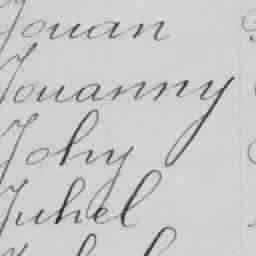 Jouan
Jouanny
Johy
Juhel